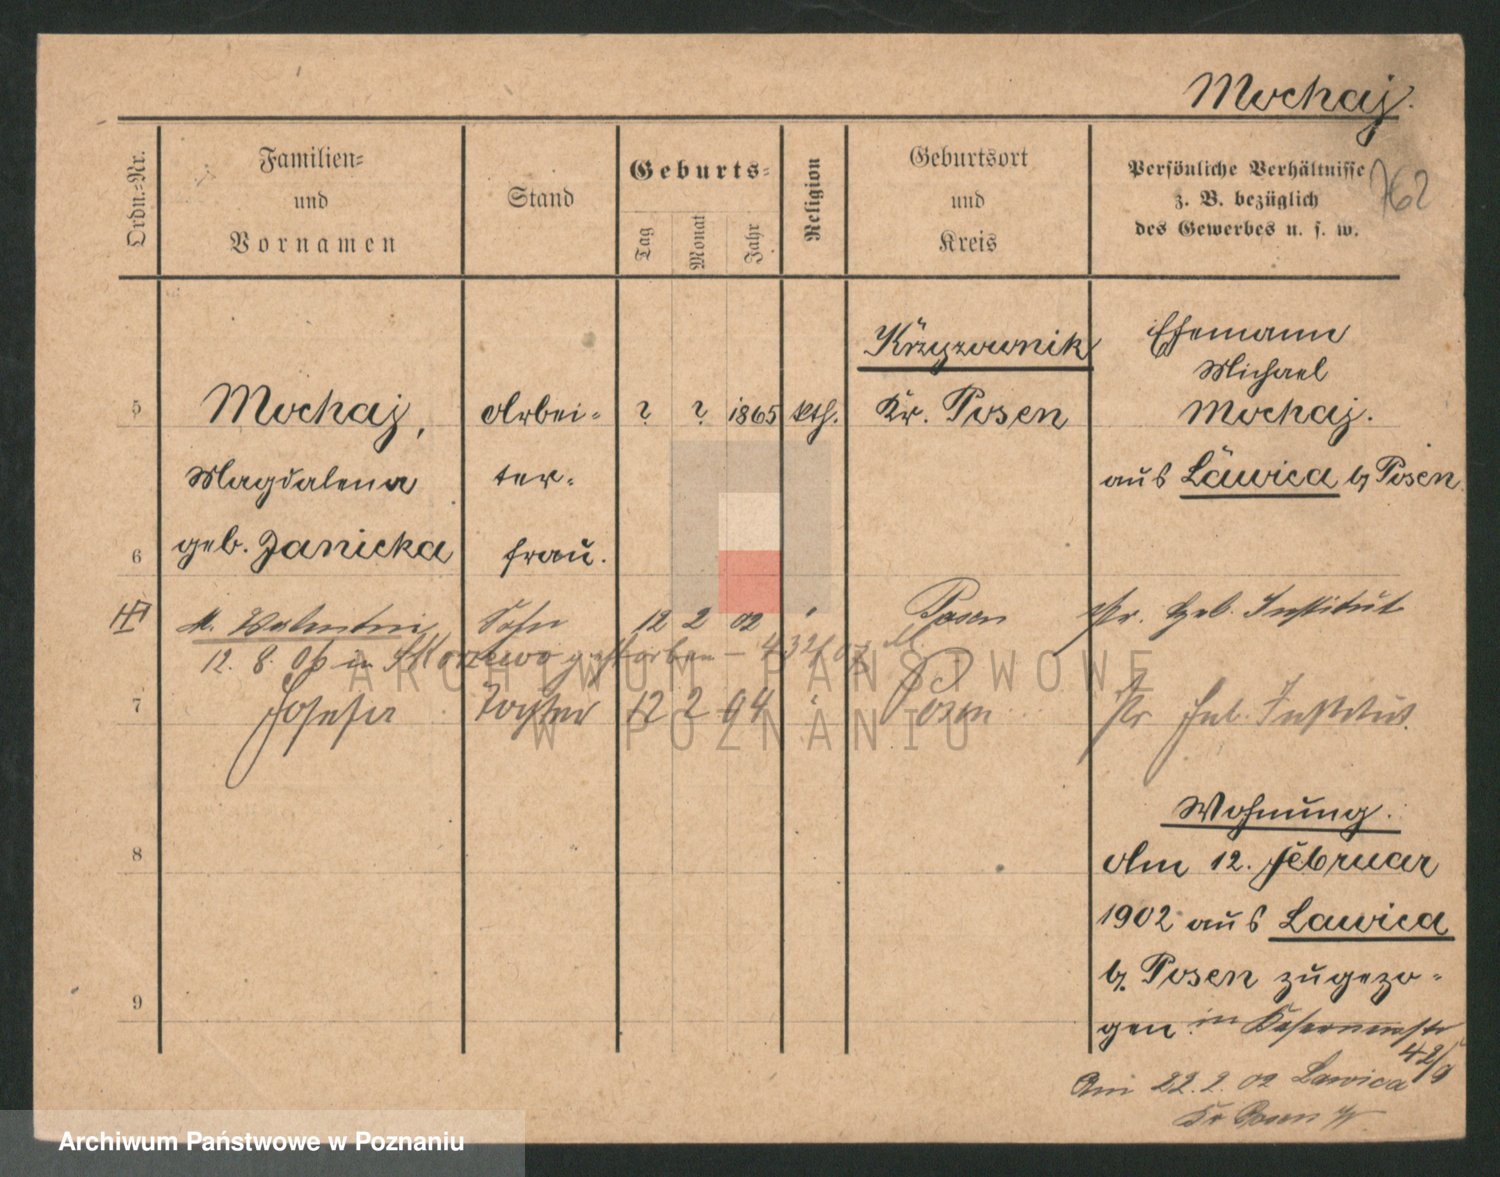 Mochaj.
Ordn.-Nr.
Familien-
und
Vornamen
Stand
Geburts-
Tag
Monat
Jahr
Religion
Geburtsort
und
Kreis
Persönliche Verhältnisse
z. B. bezüglich
des Gewerbes u. s. w.
762
Krzyzownik
Ehemann
Michael
5 Mochaj, Arbei- ? ? 1865 kth. Kr. Posen Mochaj.
Magdalena ter- aus Lawica b/ Posen
6 geb. Janicka frau.
M. Valentin Sohn 12 2 02 Posen Pr. Heb. Institut
12. 8. 06 in gestorben
7 Josefa Tochter 12 2 04 Posen Pr Heb. Institut.
Wohnung.
8 Am 12. Februar
1902 aus Lawica
b. Posen zugezo-
9
gen in Kasernenstr
42/9
Am 22. 2. 02 Lawica
Kr Posen
ARCHIWUM PAŃSTWOWE
W POZNANIU
Archiwum Państwowe w Poznaniu